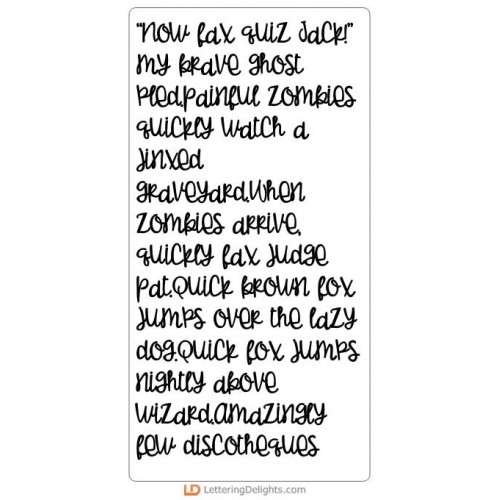 "Now fax quiz Jack!"
my brave ghost
pled.painful zombies
quickly watch a
jinxed
graveyard.when
zombies arrive,
quickly fax judge
pat.Quick brown fox
jumps over the lazy
dog.Quick fox jumps
nightly above
wizard.amazingly
few discotheques
LD LetteringDelights.com